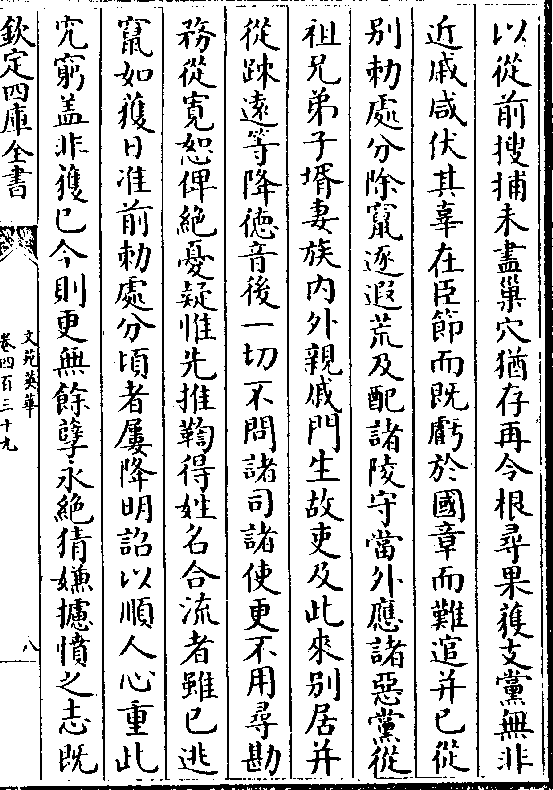 以從前搜捕未盡巢穴猶存再今根尋果獲支黨無非
近戚咸伏其辜在臣節而既虧於國章而難逭并已從
別勅處分除竄逐遐荒及配諸陵守當外應諸惡黨從
祖兄弟子壻妻族内外親戚門生故吏及此來別居并
從踈遠等降徳音後一切不問諸司諸使更不用尋勘
務從寛恕俾絶憂疑惟先推鞫得姓名合流者雖已逃
竄如獲日准前勅處分頃者屢降明詔以順人心重此
究窮盖非獲已今則更無餘孽永絶猜嫌攄憤之志既
欽定四庫全書
文苑英華
卷四百三十九
八